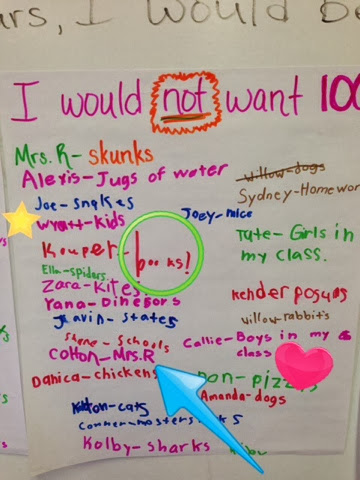 I would be
I would not want 100
Mrs. R- skunks
Alexis-Jugs of water
willow-dogs
Sydney-Homewor
Joe-snakes
Joey-mice
Wyatt-kids
Kouper- books!
Tate-Girls in
my class.
Ella-spiders.
Zara-Kites
Kender
Yana-
willow-rabbits
states
Shane-Schools
Callie-Boys in my
class
Colton-Mrs.R
Danica-chickens
Amanda-dogs
cats
Kolby-sharks